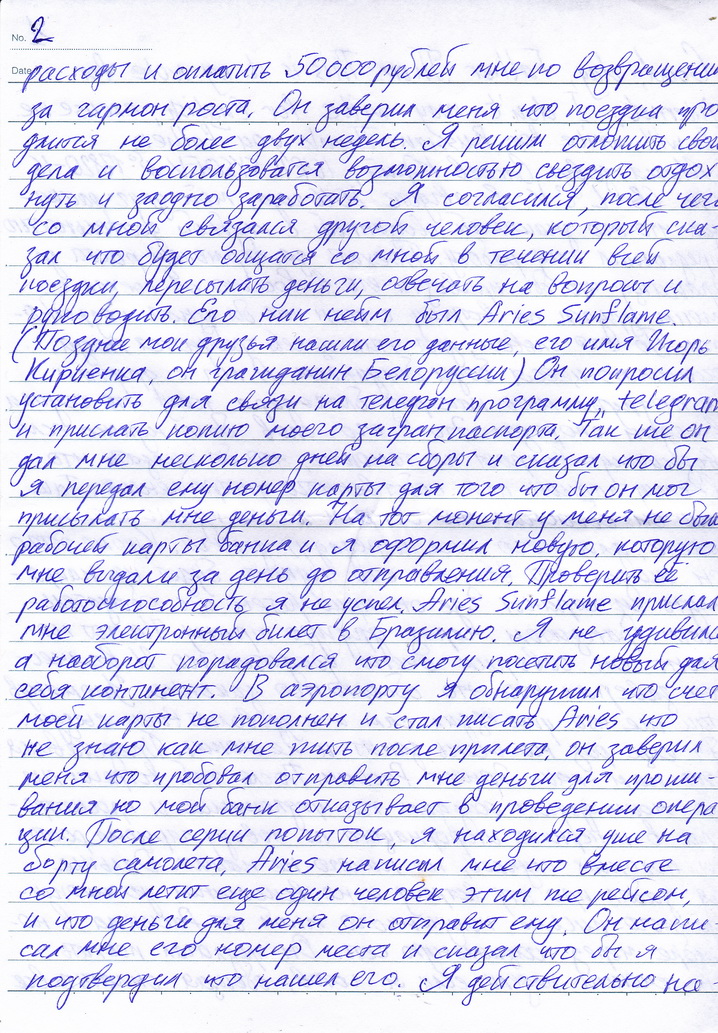 No. 2
Date
расходы и оплатить 50000 рублей мне по возвращении
за гармон роста. Он заверил меня что поездка про
длится не более двух недель. Я решил отложить свои
дела и воспользоватся возможностью сьездить отдох
нуть и заодно заработать. Я согласился, после чего
со мной связался другой человек, который ска-
зал что будет общатся со мной в течении всей
поездки, пересылать деньги, отвечать на вопросы и
руководить. Его ник нейм был Aries Sunflame.
(Позднее мои друзья нашли его данные, его имя Игорь
Кириенка, он гражданин Белоруссии) Он попросил
установить для связи на телефон программу, telegram
и прислать копию моего загран паспорта. Так же он
дал мне несколько дней на сборы и сказал что бы
я передал ему номер карты для того что бы он мог
присылать мне деньги. На тот момент у меня не было
рабочей карты банка и я оформил новую, которую
мне выдали за день до отправления. Проверить её
работоспособность я не успел. Aries Sunflame прислал
мне электронный билет в Бразилию. Я не удивился
а наоборот порадовался что смогу посетить новый для
себя континент. В аэропорту я обнаружил что счет
моей карты не пополнен и стал писать Aries что
не знаю как мне жить после прилета, он заверил
меня что пробовал отправить мне деньги для прожи-
вания но мой банк отказывает в проведении опера
ции. После серии попыток, я находился уже на
борту самолета, Aries написал мне что вместе
со мной летит еще один человек этим же рейсом,
и что деньги для меня он отправит ему. Он напи-
сал мне его номер места и сказал что бы я
подтвердил что нашел его. Я действительно на-